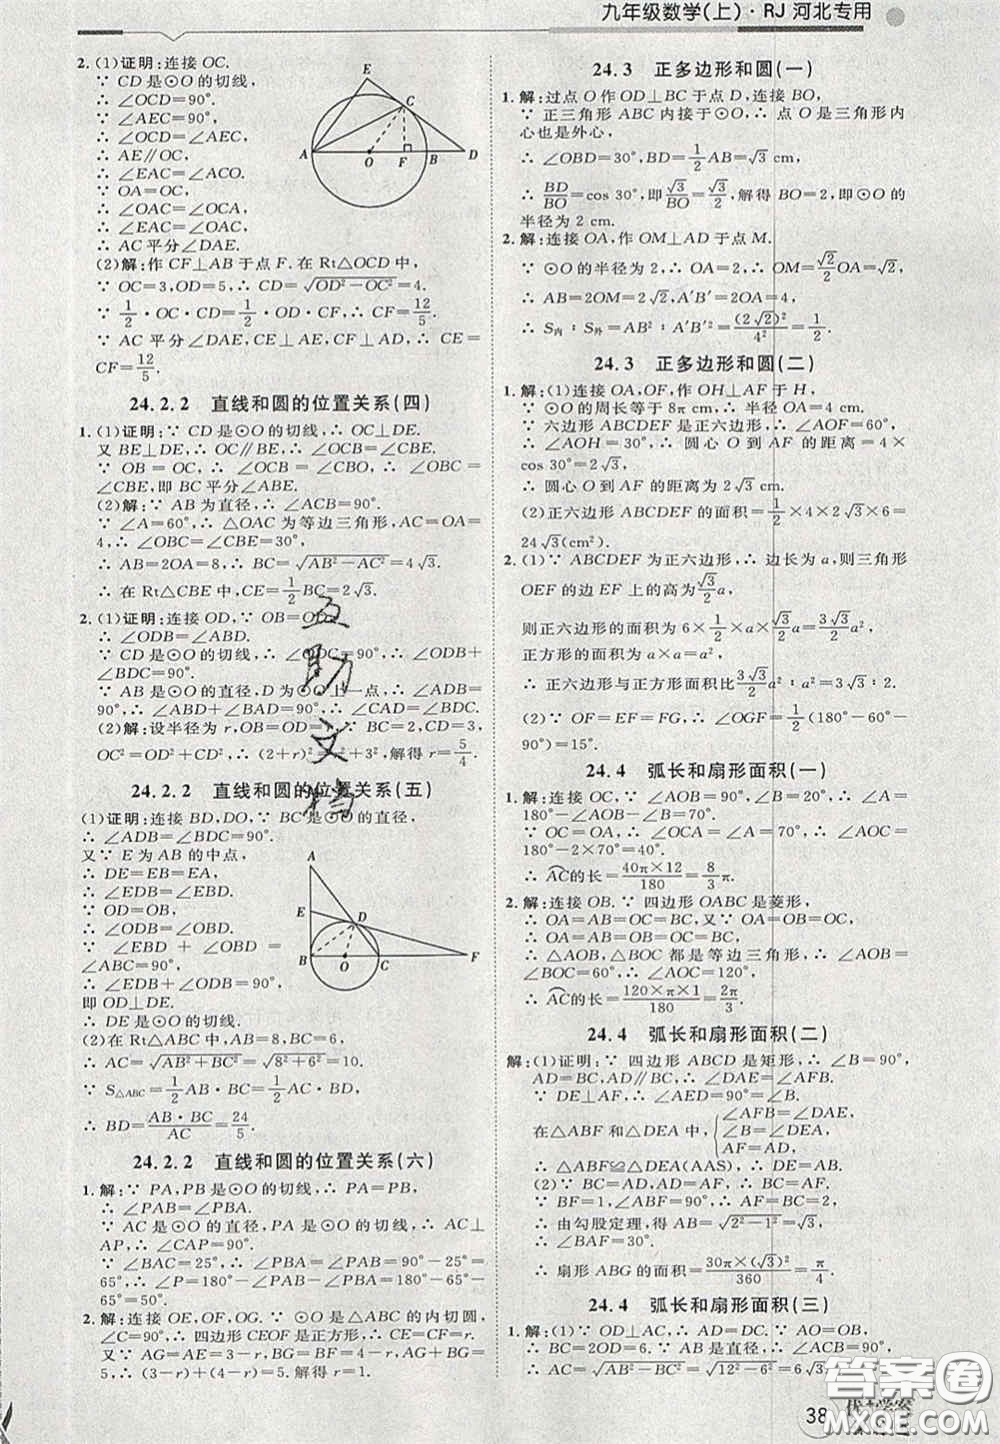 九年级数学(上)·RJ 河北专用
2. (1)证明:连接 OC.
∵ CD 是⊙O 的切线,
∴ ∠OCD=90°.
∵ ∠AEC=90°,
∴ ∠OCD=∠AEC,
∴ AE∥OC,
∴ ∠EAC=∠ACO.
∵ OA=OC,
∴ ∠OAC=∠OCA,
∴ ∠EAC=∠OAC,
∴ AC 平分∠DAE.
(2)解:作 CF⊥AB 于点 F. 在 Rt△OCD 中,
∵ OC=3, OD=5, ∴ CD=√(OD²−OC²)=4.
∵ 1/2·OC·CD=1/2·OD·CF, ∴ CF=12/5.
∵ AC 平分∠DAE, CE⊥AE, CF⊥AD, ∴ CE=
CF=12/5.
E
C
A
O
F
B
D
24.2.2 直线和圆的位置关系(四)
1. (1)证明:∵ CD 是⊙O 的切线, ∴ OC⊥DE.
又 BE⊥DE, ∴ OC∥BE, ∴ ∠OCB=∠CBE.
∵ OB=OC, ∴ ∠OCB=∠CBO, ∴ ∠OBC=
∠CBE, 即 BC 平分∠ABE.
(2)解:∵ AB 为直径, ∴ ∠ACB=90°.
∵ ∠A=60°, ∴ △OAC 为等边三角形, AC=OA=
4, ∴ AB=2OA=8, ∴ BC=√(AB²−AC²)=4√3.
∴ 在 Rt△CBE 中, CE=1/2 BC=2√3.
2. (1)证明:连接 OD, ∵ OB=OD,
∴ ∠ODB=∠ABD.
∵ CD 是⊙O 的切线, ∴ ∠ODC=90°, ∴ ∠ODB+
∠BDC=90°.
∵ AB 是⊙O 的直径, D 为⊙O 上一点, ∴ ∠ADB=
90°, ∴ ∠ABD+∠BAD=90°, ∴ ∠CAD=∠BDC.
(2)解:设半径为 r, OB=OD=r, ∵ BC=2, CD=3,
OC²=OD²+CD², ∴ (2+r)²=r²+3², 解得 r=5/4.
24.2.2 直线和圆的位置关系(五)
(1)证明:连接 BD, DO, ∵ BC 是⊙O 的直径,
∴ ∠ADB=∠BDC=90°.
又∵ E 为 AB 的中点,
∴ DE=EB=EA,
∴ ∠EDB=∠EBD.
∵ OD=OB,
∴ ∠ODB=∠OBD.
∵ ∠EBD+∠OBD=
∠ABC=90°,
∴ ∠EDB+∠ODB=90°,
即 OD⊥DE.
∴ DE 是⊙O 的切线.
(2)在 Rt△ABC 中, AB=8, BC=6,
∴ AC=√(AB²+BC²)=√(8²+6²)=10.
∵ S△ABC=1/2 AB·BC=1/2 AC·BD,
∴ BD=AB·BC/AC=24/5.
A
E
D
B
O
C
F
24.2.2 直线和圆的位置关系(六)
1. 解:∵ PA, PB 是⊙O 的切线, ∴ PA=PB,
∴ ∠PAB=∠PBA.
∵ AC 是⊙O 的直径, PA 是⊙O 的切线, ∴ AC⊥
AP, ∴ ∠CAP=90°.
∵ ∠BAC=25°, ∴ ∠PBA=∠PAB=90°−25°=
65°, ∴ ∠P=180°−∠PAB−∠PBA=180°−65°−
65°=50°.
2. 解:连接 OE, OF, OG. ∵ ⊙O 是△ABC 的内切圆,
∠C=90°, ∴ 四边形 CEOF 是正方形, ∴ CE=CF=r.
又∵ AG=AE=3−r, BG=BF=4−r, AG+BG=
5, ∴ (3−r)+(4−r)=5. 解得 r=1.
24.3 正多边形和圆(一)
1. 解:过点 O 作 OD⊥BC 于点 D, 连接 BO,
∵ 正三角形 ABC 内接于⊙O, ∴ 点 O 是三角形内
心也是外心,
∴ ∠OBD=30°, BD=1/2 AB=√3 (cm).
∴ BD/BO=cos 30°, 即√3/BO=√3/2, 解得 BO=2, 即⊙O 的
半径为 2 cm.
2. 解:连接 OA, 作 OM⊥AD 于点 M.
∵ ⊙O 的半径为 2, ∴ OA=2, ∴ OM=√2/2 OA=√2,
∴ AB=2OM=2√2, A′B′=2OA=4,
∴ S内∶S外=AB²∶A′B′²=(2√2)²/4²=1/2.
24.3 正多边形和圆(二)
1. 解:(1)连接 OA, OF, 作 OH⊥AF 于 H,
∵ ⊙O 的周长等于 8π cm, ∴ 半径 OA=4 cm.
∵ 六边形 ABCDEF 是正六边形, ∴ ∠AOF=60°,
∴ ∠AOH=30°, ∴ 圆心 O 到 AF 的距离=4×
cos 30°=2√3.
∴ 圆心 O 到 AF 的距离为 2√3 cm.
(2)正六边形 ABCDEF 的面积=1/2×4×2√3×6=
24√3(cm²).
2. (1)∵ ABCDEF 为正六边形, ∴ 边长为 a, 则三角形
OEF 的边 EF 上的高为√3/2 a,
则正六边形的面积为 6×1/2×a×√3/2 a=3√3/2 a²,
正方形的面积为 a×a=a²,
∴ 正六边形与正方形面积比3√3/2 a²∶a²=3√3∶2.
(2)∵ OF=EF=FG, ∴ ∠OGF=1/2(180°−60°−
90°)=15°.
24.4 弧长和扇形面积(一)
1. 解:连接 OC, ∵ ∠AOB=90°, ∠B=20°, ∴ ∠A=
180°−∠AOB−∠B=70°.
∵ OC=OA, ∴ ∠OCA=∠A=70°, ∴ ∠AOC=
180°−2×70°=40°.
∴ AC的长=40π×12/180=8/3 π.
2. 解:连接 OB. ∵ 四边形 OABC 是菱形,
∴ OA=AB=OC=BC, 又∵ OA=OB=OC,
∴ OA=AB=OB=OC=BC,
∴ △AOB, △BOC 都是等边三角形, ∴ ∠AOC=
120°.
∴ AC的长=120×π×1/180=2π/3.
24.4 弧长和扇形面积(二)
解:(1)证明:∵ 四边形 ABCD 是矩形, ∴ ∠B=90°,
AD=BC, AD∥BC, ∴ ∠DAE=∠AFB.
∵ DE⊥AF, ∴ ∠AED=90°=∠B.
在△ABF 和△DEA 中, {∠AFB=∠DAE, ∠B=∠DEA, AB=DE,
∴ △ABF≌△DEA(AAS), ∴ DE=AB.
(2)∵ BC=AD, AD=AF, ∴ BC=AF=2.
∵ BF=1, ∠ABF=90°,
∴ 由勾股定理, 得 AB=√(2²−1²)=√3,
∴ ∠BAF=30°.
∴ 扇形 ABG 的面积=30π×(√3)²/360=π/4.
24.4 弧长和扇形面积(三)
1. 解:(1)∵ OD⊥AC, ∴ AD=CD. ∵ AO=OB,
∴ BC=2OD=6. ∵ AB 是直径, ∴ ∠ACB=90°,
∴ AC=√(AB²−BC²)=√(12²−6²)=6√3.
38
互助文档
答案圈
MXQE.COM